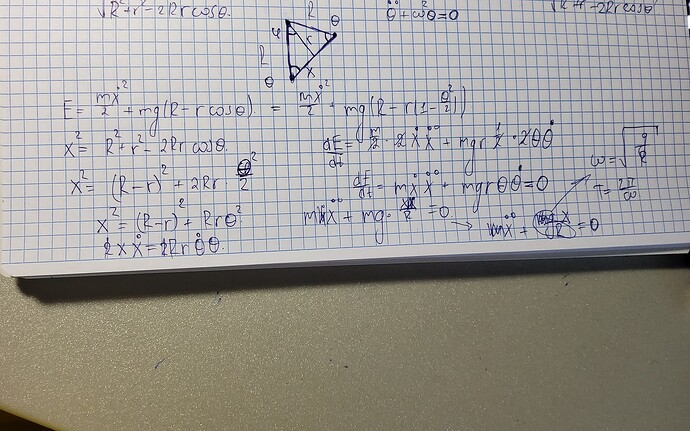 √R²+r²-2Rr cosθ.
R θ
θ̈+ω²θ=0
√R²+r²-2Rr cosθ
φ r
R
θ x
E = mẋ²/2 + mg(R-r cosθ) = mẋ²/2 + mg(R-r(1-θ²/2))
x² = R²+r²-2Rr cosθ.
dE/dt = m/2 · 2ẋẍ + mgr 1/2 · 2θθ̇
x² = (R-r)² + 2Rr · θ²/2
dE/dt = mẋẍ + mgrθθ̇ = 0
ω = √g/R
T = 2π/ω
x² = (R-r)² + Rrθ²
mẋẍ + mg · xẋ/R = 0
→ mẍ + mg x/R = 0
2xẋ = 2Rrθ̇θ.